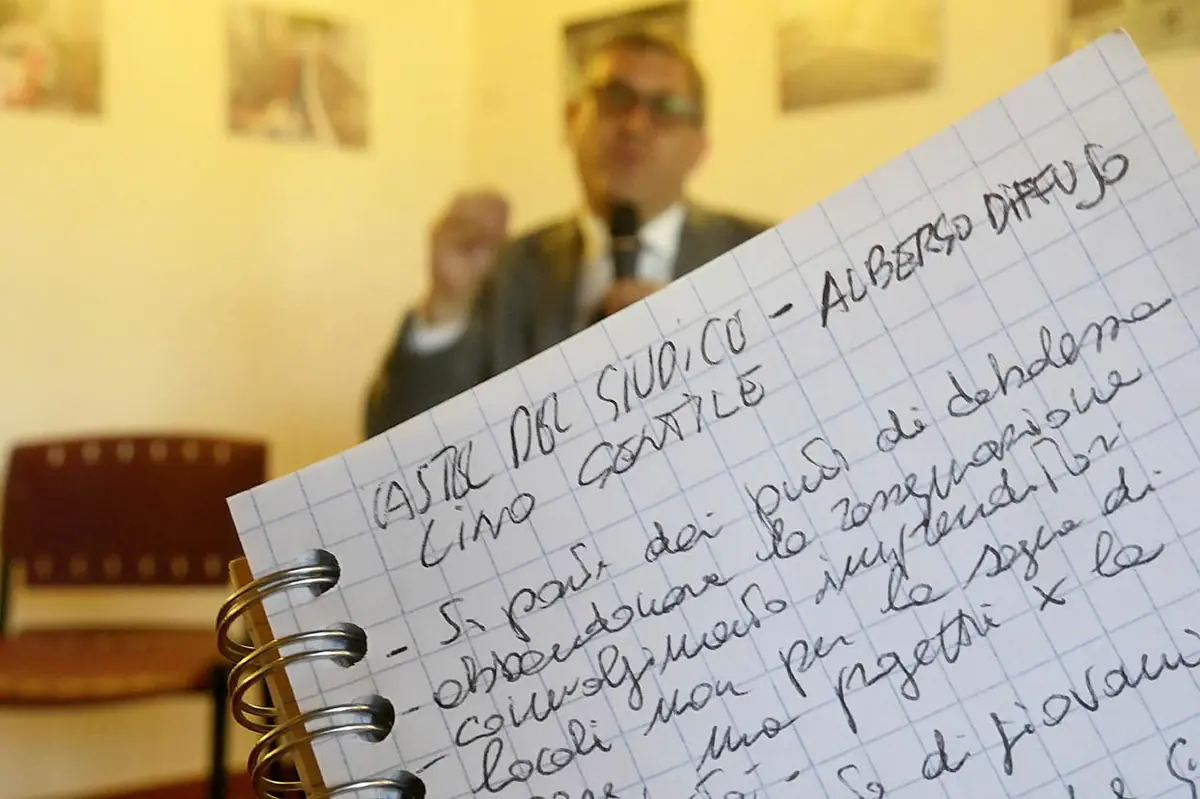 CASTEL DEL GIUDICO - ALBERGO DIFFUSO
LINO GENTILE
- Si parte dai punti di debolezza
- abbandonare la rassegnazione
coinvolgimento imprenditori
- locali non per la sagra di
ma progetti x la
di giovani